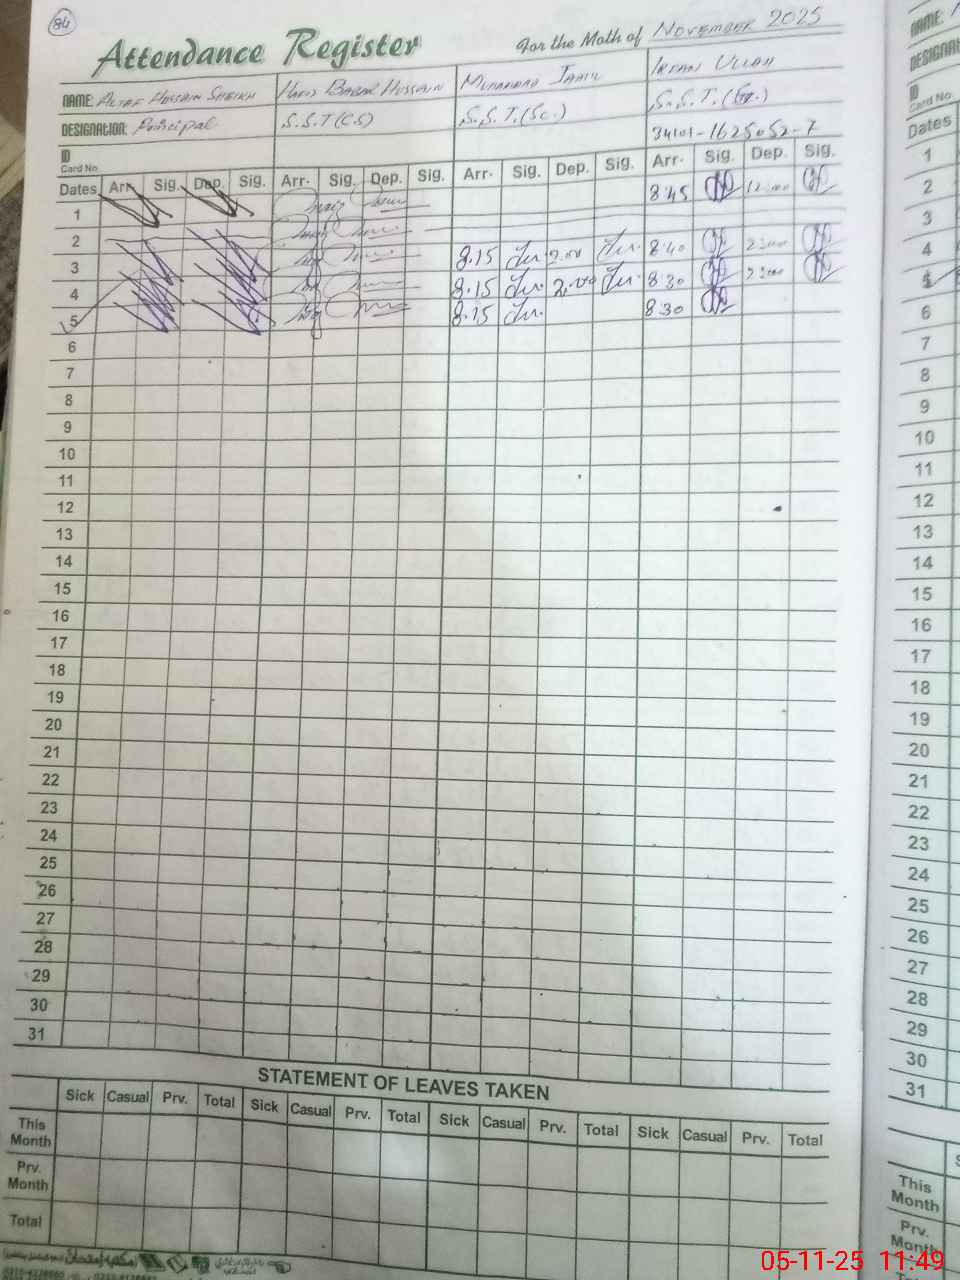 84
Attendance Register For the Moth of November 2025
NAME: Altaf Hussain Sheikh Hafiz Babar Hussain Muhammad Jamil Irfan Ullah
DESIGNATION: Principal S.S.T (CS) S.S.T. (Sc.) S.S.T.
ID Card No. 34101-1625052-7
Dates Arr. Sig. Dep. Sig. Arr. Sig. Dep. Sig. Arr. Sig. Dep. Sig. Arr. Sig. Dep. Sig.
1 8:45
2
3 8.15 2.00 8:40
4 8.15 2.00 8:30
5 8.15 8:30
6
7
8
9
10
11
12
13
14
15
16
17
18
19
20
21
22
23
24
25
26
27
28
29
30
31
STATEMENT OF LEAVES TAKEN
Sick Casual Prv. Total Sick Casual Prv. Total Sick Casual Prv. Total Sick Casual Prv. Total
This Month
Prv. Month
Total
NAME:
DESIGNATION
ID
Card No.
Dates
1
2
3
4
5
6
7
8
9
10
11
12
13
14
15
16
17
18
19
20
21
22
23
24
25
26
27
28
29
30
31
This Month
Prv. Month
05-11-25 11:49